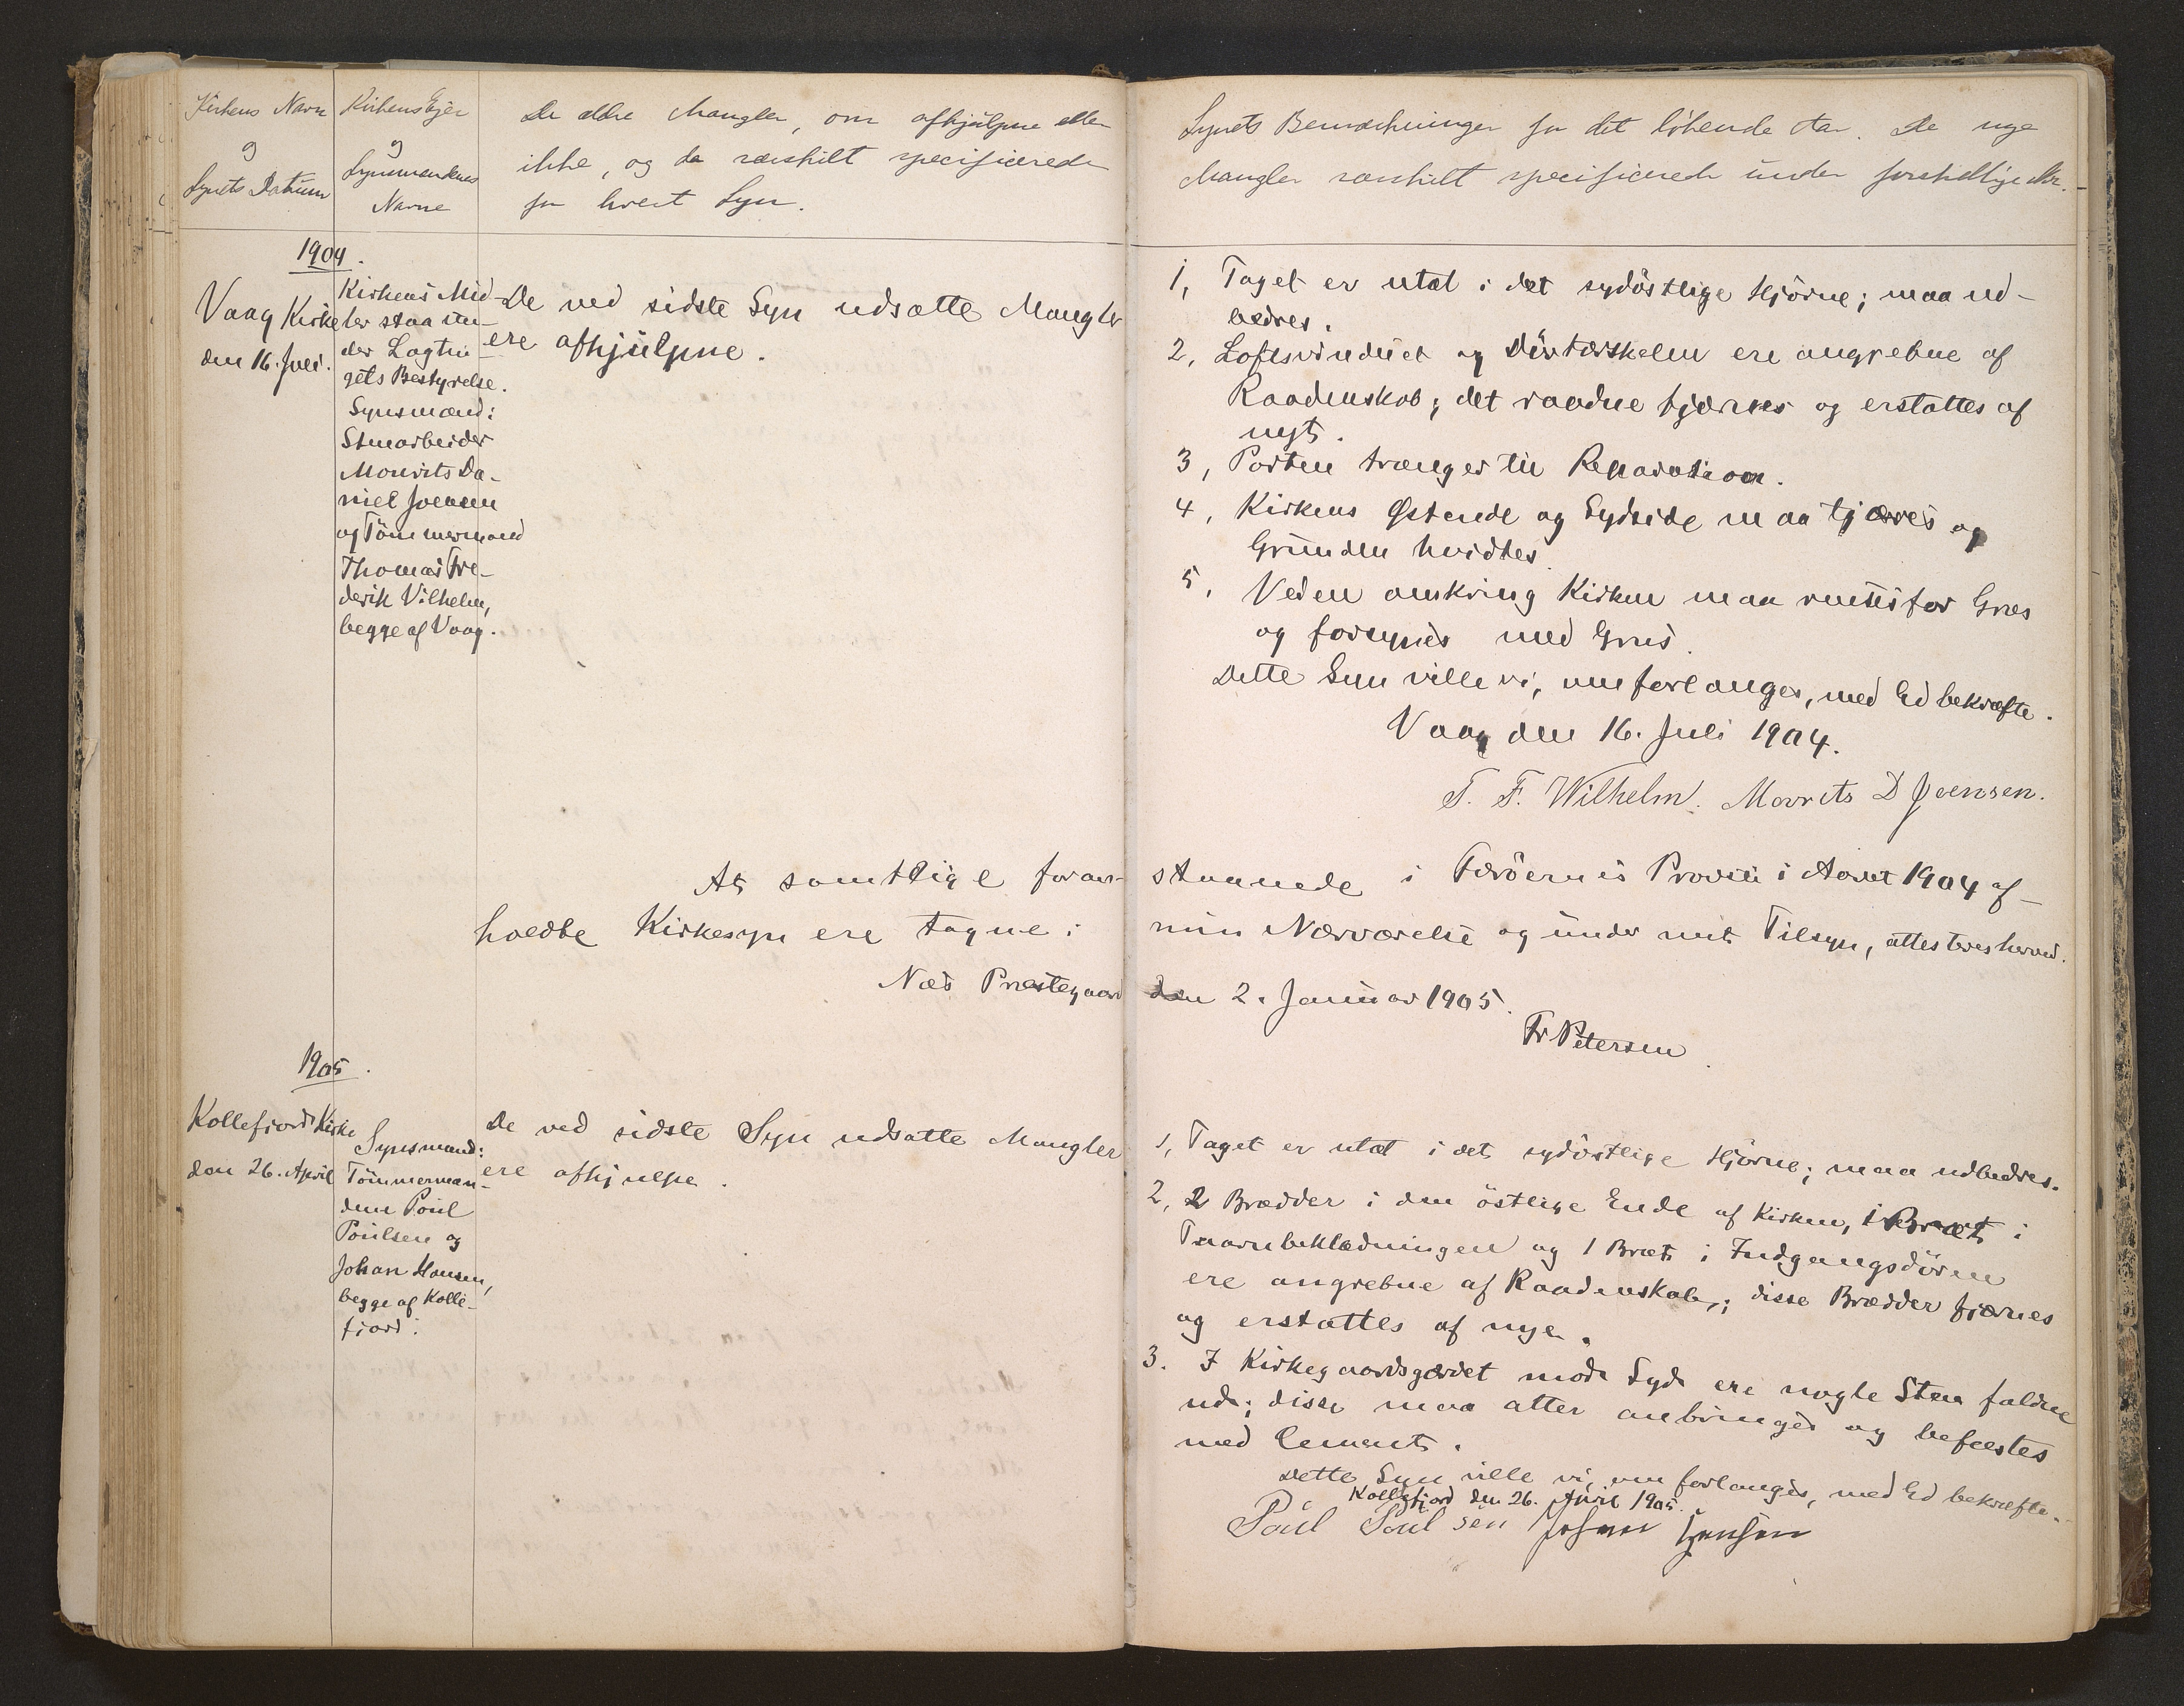 Kirkens Navn
og
Synets Datum
Kirkens Ejer
og
Synsmændenes
Navne
De ældre Mangler, om afhjülpne eller
ikke, og da særskilt specificerede
for hvert Syn.
1904.
Vaag Kirke
den 16. Juli.
Kirkens Mid-
ler staa ün-
der Lagtin-
gets Bestyrelse.
Synsmænd:
Stenarbeider
Mourits Da-
niel Joensen
og Tömmermand
Thomas Fre-
derik Vilhelm,
begge af Vaag.
De ved sidste Syn udsatte Mangler
ere afhjülpne.
1, Taget er utæt i det sydöstlige Hjörne; maa ud-
bedres.
2, Loftsvinduet og Dörtærskelen ere angrebne af
Raadenskab; det raadne fjærnes og erstattes af
nyt.
3, Porten trænger til Reparation.
4, Kirkens Østende og Sydside maa tjæres og
Grunden hvidtes.
5, Veden omkring Kirken maa renses for Græs
og forsynes med Grus.
Dette Syn ville vi, om forlanges, med Ed bekræfte.
Vaag den 16. Juli 1904.
T. F. Wilhelm. Mourits D Joensen.
At samtlige foran-staaende i Færöernes Provsti i Aaret 1904 af-
holdte Kirkesyn ere tagne i min Nærværelse og under mit Tilsyn, attesteres herved.
Næs Præstegaard den 2. Januar 1905.
Fr Petersen
1905.
Kollefjord Kirke
den 26. April
Synsmænd:
Tömmermæn-
dene Poül
Poülsen og
Johan Hansen,
begge af Kolle-
fjord.
De ved sidste Syn udsatte Mangler
ere afhjulpe.
1, Taget er utæt i det sydöstlige Hjörne; maa udbedres.
2, 2 Brædder i den östlige Ende af Kirken, 1 Bræt i
Taarnbeklædningen og 1 Bræt i Indgangsdören
ere angrebne af Raadenskab; disse Brædder fjærnes
og erstattes af nye.
3. I Kirkegaardsgærdet mod Syd ere nogle Sten faldne
ud; disse maa atter anbringes og befæstes
med Cement.
Dette Syn ville vi, om forlanges, med Ed bekræfte.
Kollefjord den 26. April 1905.
Poül Poülsen Johan Hansen